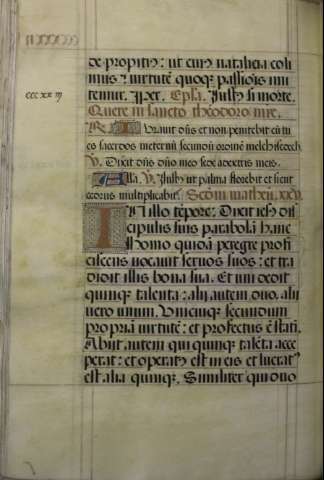 de propitiꝰ: ut cuiꝰ natalicia coli
mus: uirtutē quoqꝫ passiōis imi
temur. Per. Epl̄a. Iustꝰ si morte.
Quere in sancto theodoro mr̄e.
R. Iurauit dn̄s et non penitebit eū tu
es sacerdos in eternū secundū ordinē melchisedech
V. Dixit dn̄s dn̄o meo sede a dextris meis.
Alla. V. Iustꝰ ut palma florebit et sicut
cedrus multiplicabitꝰ. Secdm̄ mathеū. xxv.
In illo tēpore: Dixit iesꝰ dis
cipulis suis parabolā hanc
Homo quidā peregre profi
ciscens uocauit seruos suos: et tra
didit illis bona sua. Et uni dedit
quinqꝫ talenta: alij autem duo. alij
uero unum. Vnicuiqꝫ secundum
propriā uirtutē: et profectus ē statī.
Abijt autem qui quinqꝫ talēta acce
perat: et operatꝰ est in eis et lucratꝰ
est alia quinqꝫ. Similiter qui duo